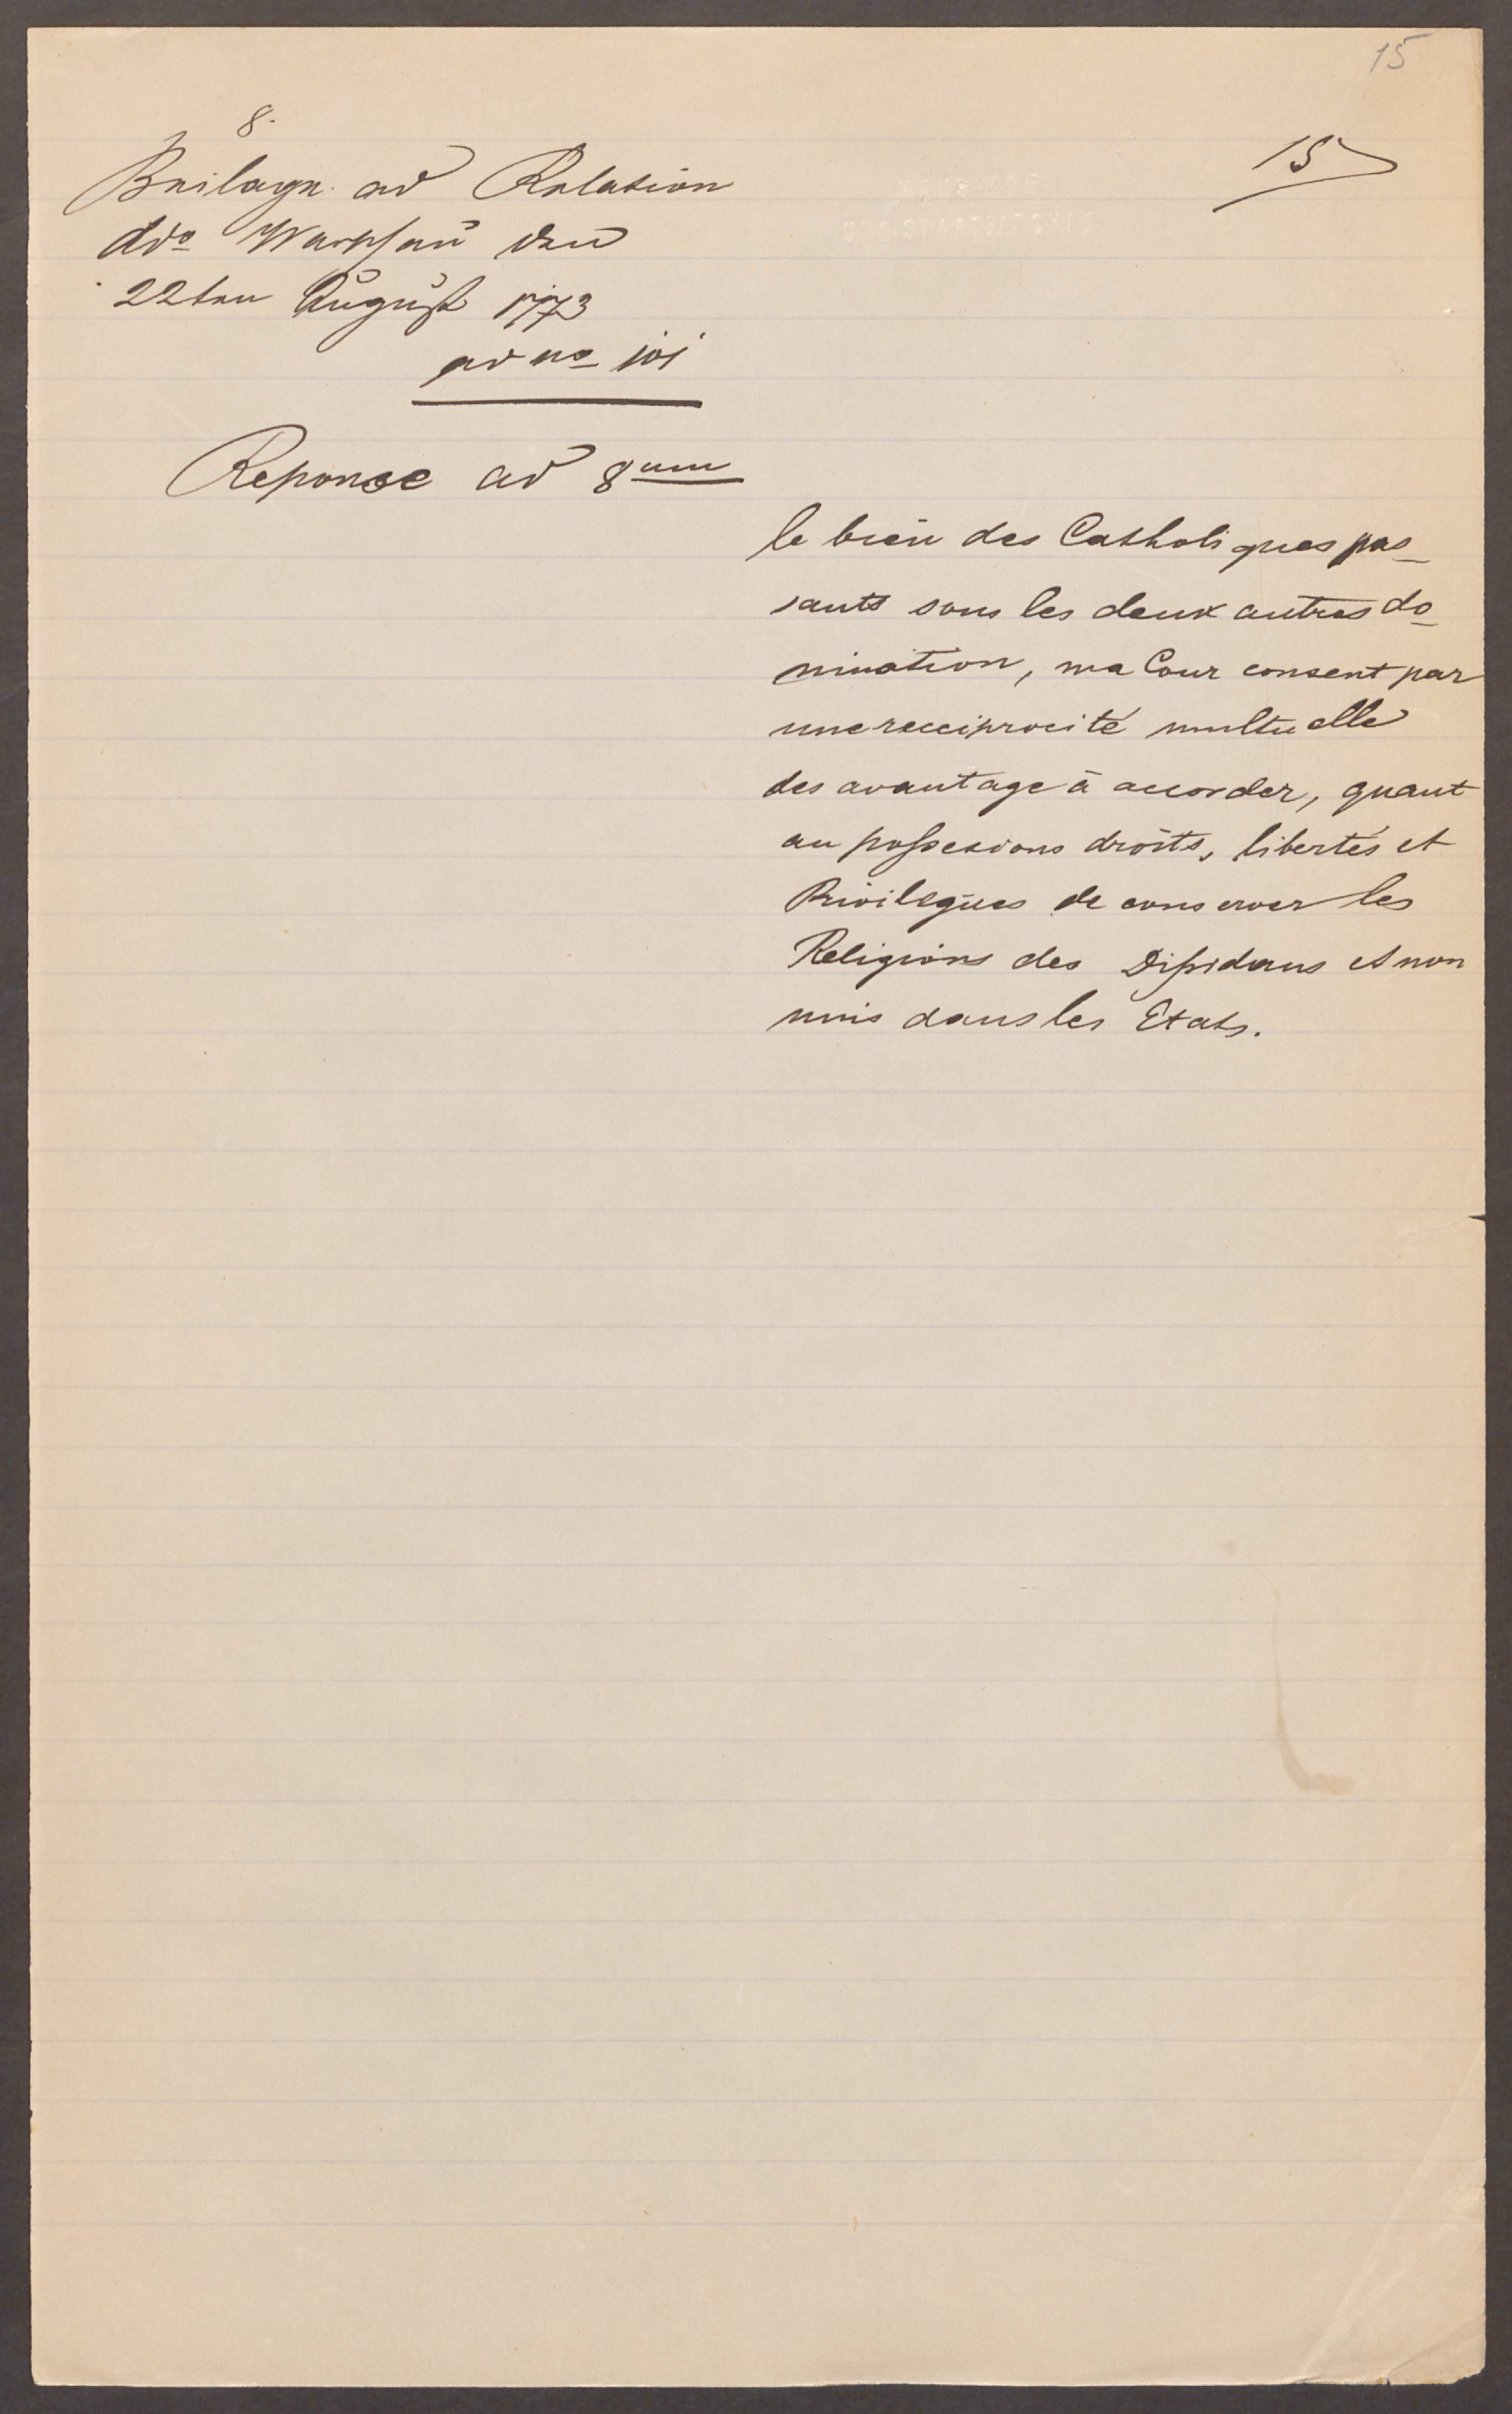 15
8.
15
Beilage ad Relation
ddo Warschau den
22ten August 1773
ad no 101
Reponse ad 8um
le bien des Catholiques pas_
sants sous les deux autres do_
mination, ma Cour consent par
une recciprocité multuelle
des avantage à accorder, quant
au possessions droits, libertés et
Privilegues de conserver les
Religions des Dissidans et non
unis dans les Etats.